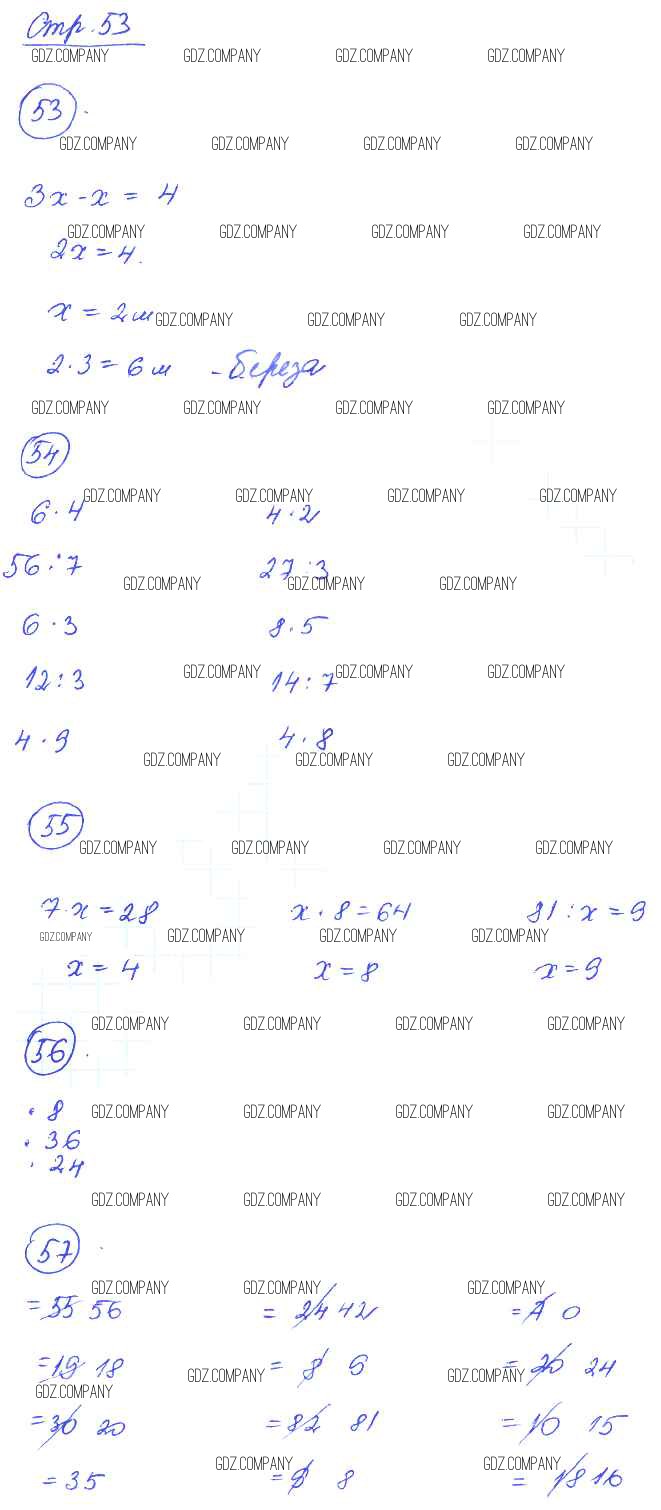 Стр. 53
GDZ.COMPANY GDZ.COMPANY GDZ.COMPANY GDZ.COMPANY
53.
GDZ.COMPANY GDZ.COMPANY GDZ.COMPANY GDZ.COMPANY
3x - x = 4
GDZ.COMPANY GDZ.COMPANY GDZ.COMPANY GDZ.COMPANY
2x = 4.
x = 2м
GDZ.COMPANY GDZ.COMPANY GDZ.COMPANY
2·3 = 6 м - береза
GDZ.COMPANY GDZ.COMPANY GDZ.COMPANY GDZ.COMPANY
54
GDZ.COMPANY GDZ.COMPANY GDZ.COMPANY GDZ.COMPANY
6·4 4·2
56:7 27:3
GDZ.COMPANY GDZ.COMPANY GDZ.COMPANY
6·3 8·5
GDZ.COMPANY GDZ.COMPANY GDZ.COMPANY
12:3 14:7
4·9 4·8
GDZ.COMPANY GDZ.COMPANY GDZ.COMPANY
55
GDZ.COMPANY GDZ.COMPANY GDZ.COMPANY GDZ.COMPANY
7·x = 28 x·8 = 64 81:x = 9
GDZ.COMPANY GDZ.COMPANY GDZ.COMPANY GDZ.COMPANY
x = 4 x = 8 x = 9
GDZ.COMPANY GDZ.COMPANY GDZ.COMPANY GDZ.COMPANY
56.
· 8 GDZ.COMPANY GDZ.COMPANY GDZ.COMPANY GDZ.COMPANY
· 36
· 24
GDZ.COMPANY GDZ.COMPANY GDZ.COMPANY GDZ.COMPANY
57.
GDZ.COMPANY GDZ.COMPANY GDZ.COMPANY
= 55 56 = 24 42 = 1 0
= 19 18 = 8 9 = 20 24
GDZ.COMPANY GDZ.COMPANY GDZ.COMPANY
= 30 20 = 82 81 = 10 15
GDZ.COMPANY GDZ.COMPANY
= 35 = 9 8 = 18 16